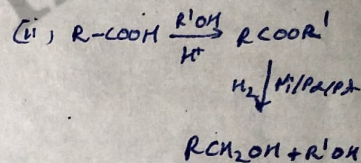 (ii) R-COOH R'OH H+ → RCOOR'
H2 ↓ Ni/Pd/Pt
RCH2OH + R'OH